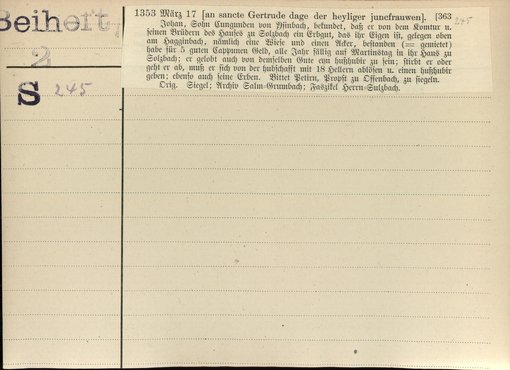 Beiheft
2
S 245
1353 März 17 [an sancte Gertrude dage der heyliger juncfrauwen]. [363
245
Johan, Sohn Cungunden von Pfinbach, bekundet, daß er von dem Komtur u.
seinen Brüdern des Hauses zu Solzbach ein Erbgut, das ihr Eigen ist, gelegen oben
am Hagginbach, nämlich eine Wiese und einen Acker, bestanden (= gemietet)
habe für 5 guten Cappunen Geld, alle Jahr fällig auf Martinstag in ihr Haus zu
Solzbach; er gelobt auch von demselben Gute eyn hußhubir zu sein; stirbt er oder
geht er ab, muß er sich von der hubschafft mit 18 Hellern ablösen u. einen hußhubir
geben; ebenso auch seine Erben. Bittet Petirn, Propst zu Offenbach, zu siegeln.
Orig. Siegel; Archiv Salm-Grumbach; Faszikel Herrn-Sulzbach.